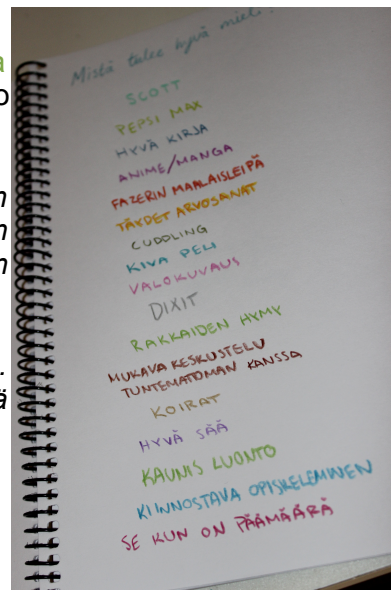 Mistä tulee hyvä mieli?
SCOTT
PEPSI MAX
HYVÄ KIRJA
ANIME/MANGA
FAZERIN MAALAISLEIPÄ
TÄYDET ARVOSANAT
CUDDLING
KIVA PELI
VALOKUVAUS
DIXIT
RAKKAIDEN HYMY
MUKAVA KESKUSTELU
TUNTEMATOMAN KANSSA
KOIRAT
HYVÄ SÄÄ
KAUNIS LUONTO
KIINNOSTAVA OPISKELEMINEN
SE KUN ON PÄÄMÄÄRÄ